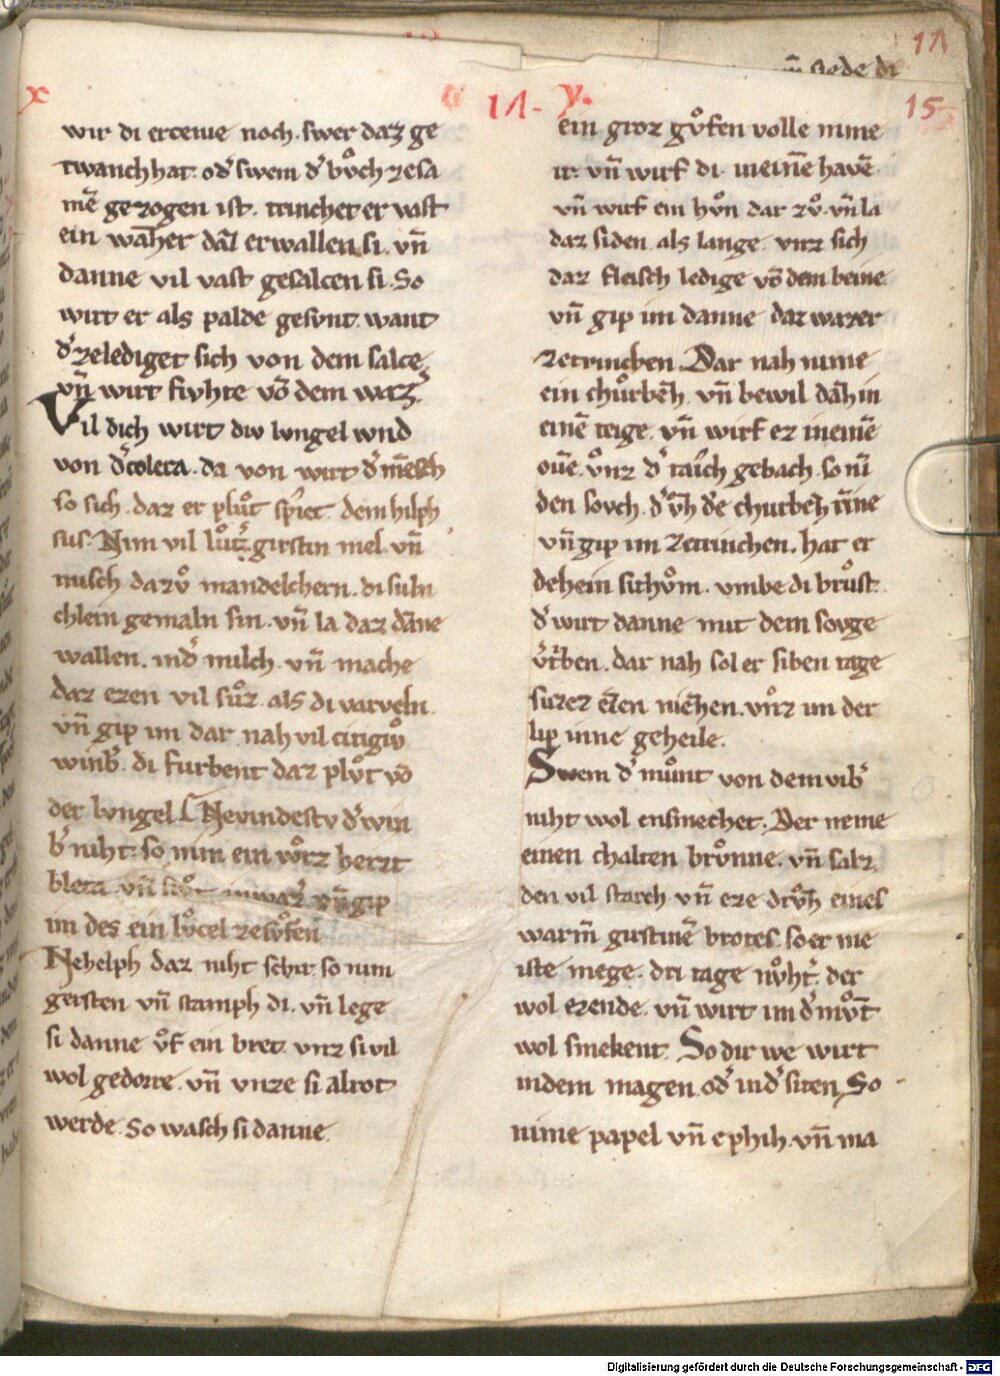 11
vñ siede di
15
x
11. y.
wir di ercenie noch. swer daz ge
twanch hat. od̓ swem d̓ bůch zesa
mē gezogen ist. trincher er vast
ein waꝫꝫer daꝫ erwallen si. vñ
danne vil vast gesalcen si. So
wirt er als palde gesvnt. want
d̓ zelediget sich von dem salce
vñ wirt fivhte vō dem waꝫꝫ̓.
Vil dich wirt div lvngel wnd
von d̓ colera. da von wirt d̓ mēsch
so sich. daz er plůt spiet. dem hilph
sus. Nim vil lůtꝫ̓ girstin mel. vñ
misch dazů mandelchern. di suln
chlein gemaln sin. vñ la daz dāne
wallen. ind̓ milch. vñ mache
daz ezen vil sůz. als di varveln.
vñ gip im dar nah vil citigiv
winb̓. di furbent daz plůt vō
der lvngel. Nevindestv d̓ win
b̓ niht. so nim ein wůrz heizt
bleta vñ inwaꝫ̓ vñ gip
im des ein lvcel zesůfen
Nehelph daz niht schir. so nim
gersten vñ stamph di. vñ lege
si danne v̊f ein bret. vnz si vil
wol gedorre. vñ vnze si alrot
werde. So wasch si danne
ein groz gůfen volle nime
ir. vñ wirf di. in einē havē.
vñ wirf ein hůn dar zů. vñ la
daz siden als lange. vnz sich
daz fleisch ledige vō dem beine.
vñ gip im danne daz wazer
zetrinchen. Dar nah nime
ein chůrbeꝫ. vñ bewil dāh in
einē teige. vñ wirf ez in einē
ovē. v̊nz d̓ taich gebach. so nī
den sovch. d̓ v̊h d̓e churbeꝫ rīne
vñ gip im zetrinchen. hat er
dehein sithům. vmbe di brůst
d̓ wirt danne mit dem sovge
v̓tben. dar nah sol er siben tage
surez eꝫꝫen nieꝫꝫen. vnz im der
lip inne geheile.
Swem d̓ můnt von dem vib̓
niht wol ensmechet. Der neme
einen chalten brůnne. vñ salz
den vil starch vñ eze dvrh eines
warm̄ girstinē brotes. so er me
iste mege. dri tage nv̊ht̓. der
wol ezende. vñ wirt im d̓ mv̊t
wol smekent. So dir we wirt
indem magen. od̓ ind̓ siten. So
nime papel vñ ephih. vñ ma
Digitalisierung gefördert durch die Deutsche Forschungsgemeinschaft - DFG